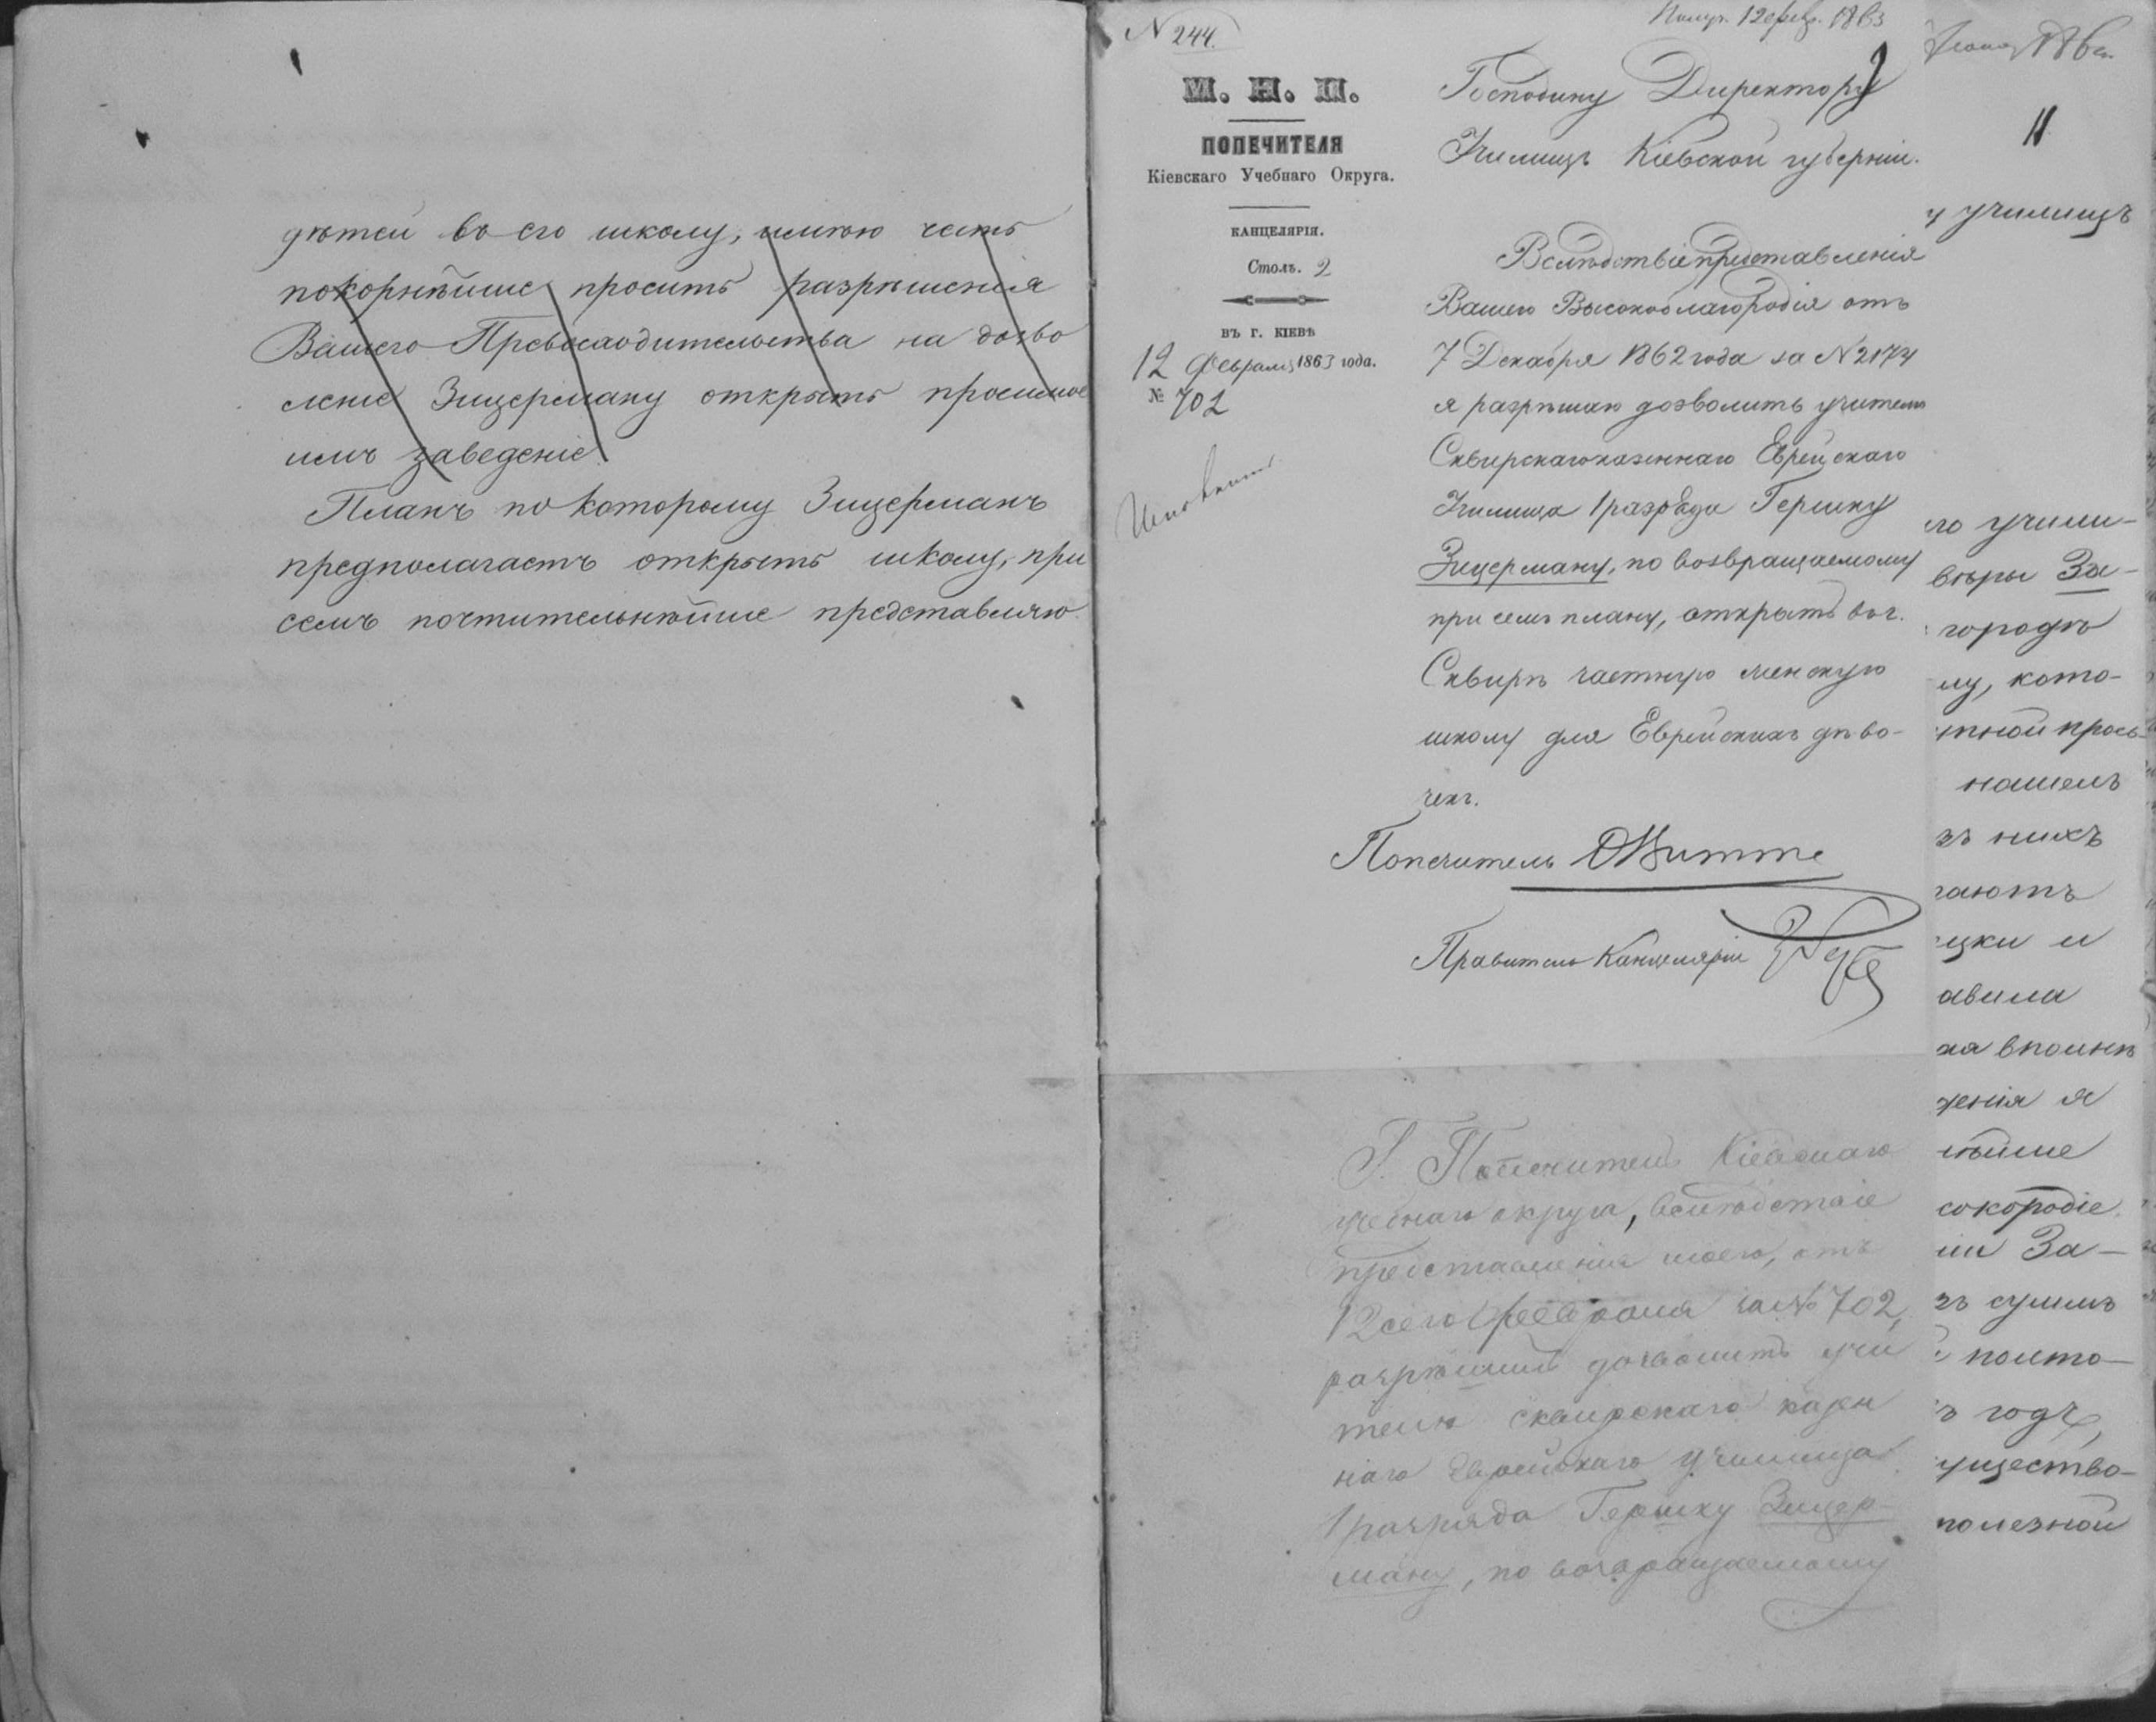 дѣтей въ его школу, имѣю честь
покорнѣйше просить разрѣшенія
Вашего Превосходительства на дозво
леніе Зицерману открыть просимое
имъ заведеніе.
Планъ по которому Зицерманъ
предполагаетъ открыть школу, при
семъ почтительнѣйше представляю.
N 244.
Получ. 12 февр. 1863
М. Н. П.
ПОПЕЧИТЕЛЯ
Кіевскаго Учебнаго Округа.
КАНЦЕЛЯРІЯ.
Столъ. 2
въ г. КІЕВѢ
12 Февраля 1863 года.
№ 702
Господину Директору
Училищъ Кіевской губерніи.
Вслѣдствіе представленія
Вашего Высокоблагородія отъ
7 Декабря 1862 года за N 2174
я разрѣшаю дозволить учителю
Сквирскаго казеннаго Еврейскаго
Училища 1 разряда Гершку
Зицерману, по возвращаемому
при семъ плану, открыть въ г.
Сквирѣ частную женскую
школу для Еврейскихъ дѣво-
чекъ.
Попечитель Витте
Правитель Канцеляріи
Г. Попечитель Кіевскаго
учебнаго округа, вслѣдствіе
представленія моего, отъ
12 сего февраля за № 702,
разрѣшилъ дозволить учи
телю сквирскаго казен
наго Еврейскаго Училища
1 разряда Гершку Зицер-
ману, по возвращаемому
11
у училищъ
го учили-
вѣры За-
городѣ
лу, кото-
тной прось-
нашелъ
зъ нихъ
гаютъ
цки и
авила
ля вполнѣ
женія я
нѣйше
сокородіе
іи За-
зъ суммъ
полто-
ъ годъ,
уществo-
полезной